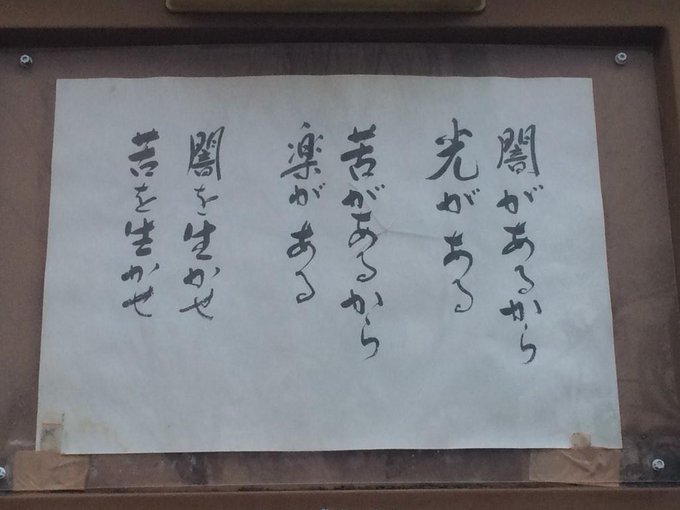 闇があるから
光がある
苦があるから
楽がある
闇を生かせ
苦を生かせ